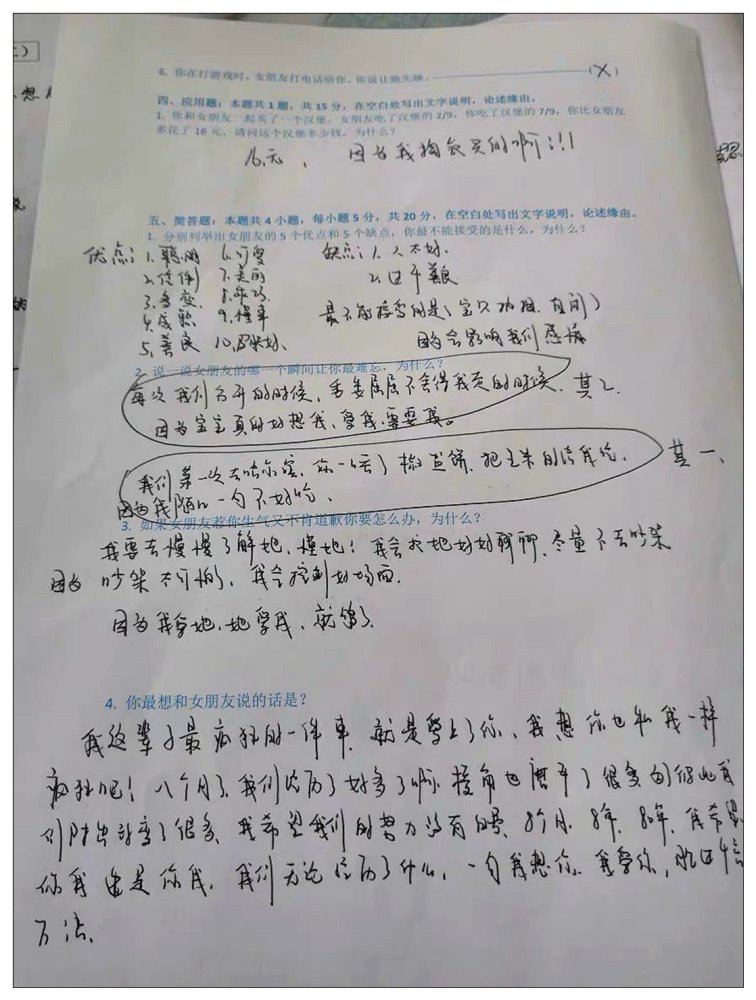 6. 你在打游戏时，女朋友打电话给你，你说让她先睡。 (X)
四、应用题：本题共 1 题，共 15 分，在空白处写出文字说明，论述缘由。
1. 你和女朋友一起买了一个汉堡，女朋友吃了汉堡的 2/9，你吃了汉堡的 7/9，你比女朋友
多花了 16 元，请问这个汉堡多少钱，为什么？
16元， 因为我掏钱买的啊!!!
五、简答题：本题共 4 小题，每小题 5 分，共 20 分，在空白处写出文字说明，论述缘由。
1. 分别列举出女朋友的 5 个优点和 5 个缺点，你最不能接受的是什么，为什么？
优点：1.聪明 6.可爱 缺点：1.
2.体 7.美丽 2.
3.善变 8.乖巧 最不能接受的是
4.成熟 9.懂事 因为会影响我们感情
5.善良 10.
2. 说一说女朋友的哪一个瞬间让你最难忘，为什么？
每次我们分开的时候，委委屈屈不舍得我走的时候。其2.
因为宝宝真的好想我，爱我，需要我。
我们第一次去哈尔滨，你一口 了椒盐饼，把 来的 给我吃， 其一、
因为我 一句不好吃.
3. 如果女朋友惹你生气又不肯道歉你要怎么办，为什么？
我要去慢慢了解她，懂她！我会和她好好聊聊，尽量不去吵架
因为 吵架太可怕了，我会控制好场面.
因为我爱她，她爱我，就够了.
4. 你最想和女朋友说的话是？
我这辈子最疯狂的一件事，就是爱上了你、我想你也和我一样
疯狂吧！八个月了，我们经历了好多了啊，棱角也磨平了很多，
们 变了很多，我希望我们的努力没有白费，8个月，8年，80年，我希望
你我 是你我，我们无论经历了什么，一句我想你，我爱你，
方法.